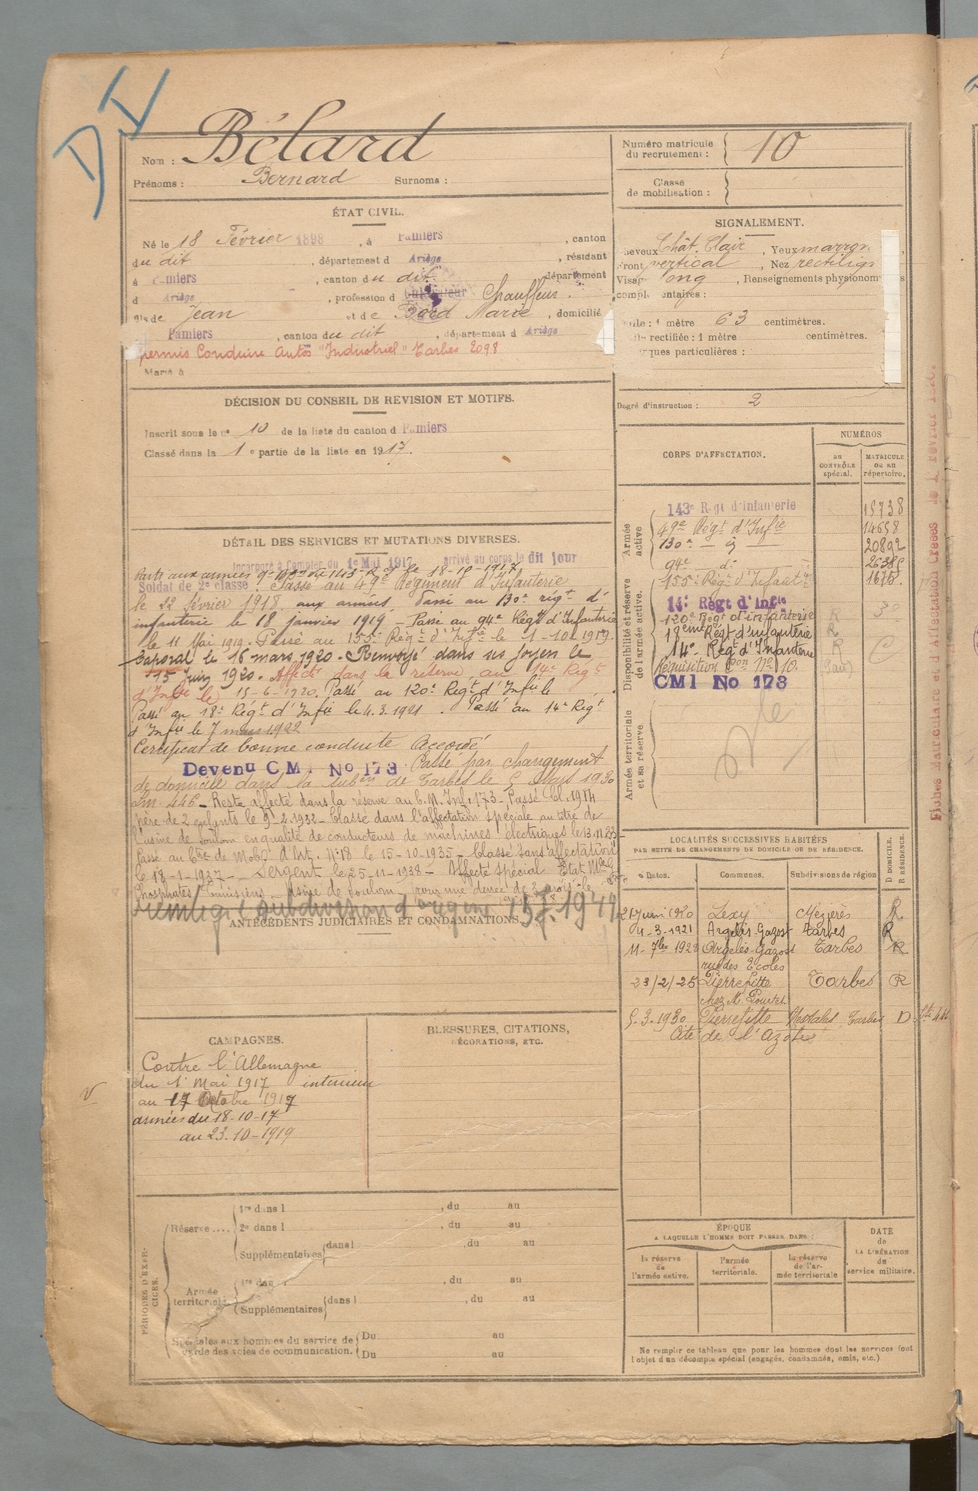 DI
Nom : Bélard
Prénoms : Bernard Surnoms :
Numéro matricule du recrutement : 10
Classe de mobilisation :
ÉTAT CIVIL.
Né le 18 Février 1898, à Pamiers, canton
du dit, département d Ariège, résidant
à Pamiers, canton du dit, département
d Ariège, profession d Cultivateur Chauffeur.
fils de Jean et de Marie, domicilié
Pamiers, canton du dit, département d Ariège
permis Conduire Autos "Industriel" Tarbes 2098
Marié à
SIGNALEMENT.
Cheveux Chât. Clair, Yeux marron
Front vertical, Nez rectilign
Visage long, Renseignements physionom
complémentaires :
Taille : 1 mètre 63 centimètres.
Taille rectifiée : 1 mètre centimètres.
Marques particulières :
Degré d'instruction : 2
DÉCISION DU CONSEIL DE REVISION ET MOTIFS.
Inscrit sous le n° 10 de la liste du canton d Pamiers
Classé dans la 1e partie de la liste en 1917.
DÉTAIL DES SERVICES ET MUTATIONS DIVERSES.
Incorporé à compter du 1er Mai 1917 arrivé au corps le dit jour
Parti aux armées le 18-10-1917
Soldat de 2e classe. Passé au 49e Régiment d'Infanterie
le 22 février 1918. aux armées. Passé au 130e régt d'
infanterie le 18 janvier 1919 - Passé au 94e Régt d'Infanterie
le 11 Mai 1919. Passé au 155e Régt d'Inftie le 1-10-1919.
Caporal le 16 mars 1920. Renvoyé dans ses foyers le
15 Juin 1920. Affecté dans la réserve au 14e Régt
d'Infie le 15-6-1920. Passé au 120e Régt d'Infie le
Passé au 18e Régt d'Infie le 4.3.1921. Passé au 14e Régt
d'Infie le 7 mars 1922
Certificat de bonne conduite Accordé
Devenu CMI No 173 Passé par changement
de domicile dans la subon de Tarbes le 5 mars 1930
Reste affecté dans la réserve au C.M. Inf. 173 - Passé Cl. 1914
père de 2 enfants le 9-2-1932 - Classé dans l'affectation spéciale au titre de
l'usine de Soulom en qualité de conducteurs de machines électriques le
Passé au de Mobon d'Int. N°18 le 15-10-1935 - Classé sans affectation
le 18-1-1937 - Sergent le 25-11-1938 - Affecté Spécial
Phosphates Tunisiens - Usine de Soulom - pour une durée de
subdivision d'origine
ANTÉCÉDENTS JUDICIAIRES ET CONDAMNATIONS.
CORPS D'AFFECTATION.
NUMÉROS
AU CONTRÔLE spécial.
MATRICULE OU AU répertoire.
Armée active
143e Régt d'Infanterie 15738
49e Régt d'Infie 14658
130e - d° 20892
94e d°
155e Régt d'Infant
Disponibilité et réserve de l'armée active.
14e Régt d'Infie
120e Régt d'infanterie R
18eme Regt d'infanterie R
14e Régt d'Infanterie R
CMI No 173
Armée territoriale et sa réserve
Fiches Matriculaire et d'Affectation Créées
LOCALITÉS SUCCESSIVES HABITÉES
PAR SUITE DE CHANGEMENTS DE DOMICILE OU DE RÉSIDENCE.
Dates. Communes. Subdivisions de région D DOMICILE. R RÉSIDENCE.
21 Juin 1920 Lexy Mézières R
4-3-1921 Argelès-Gazost Tarbes R
11-7bre 1922 Argelès-Gazost Tarbes R
rue des Ecoles
23/2/25 Pierrefitte Tarbes R
chez M.
5-3-1930 Pierrefitte Nestalas Tarbes D
Cité de l'Azote
CAMPAGNES.
Contre l'Allemagne
du 1er Mai 1917 intérieur
au 17 Octobre 1917
armées du 18-10-17
au 23-10-1919
BLESSURES, CITATIONS, DÉCORATIONS, ETC.
PÉRIODES D'EXERCICES.
Réserve.... 1re dans l , du au
2e dans l , du au
Supplémentaires dans l , du au
Armée territoriale 1re dans l , du au
Supplémentaires dans l , du au
Spéciales aux hommes du service de garde des voies de communication. Du au
Du au
ÉPOQUE
A LAQUELLE L'HOMME DOIT PASSER DANS :
la réserve de l'armée active.
l'armée territoriale.
la réserve de l'armée territoriale
DATE de LA LIBÉRATION du service militaire.
Ne remplir ce tableau que pour les hommes dont les services font
l'objet d'un décompte spécial (engagés, condamnés, omis, etc.)